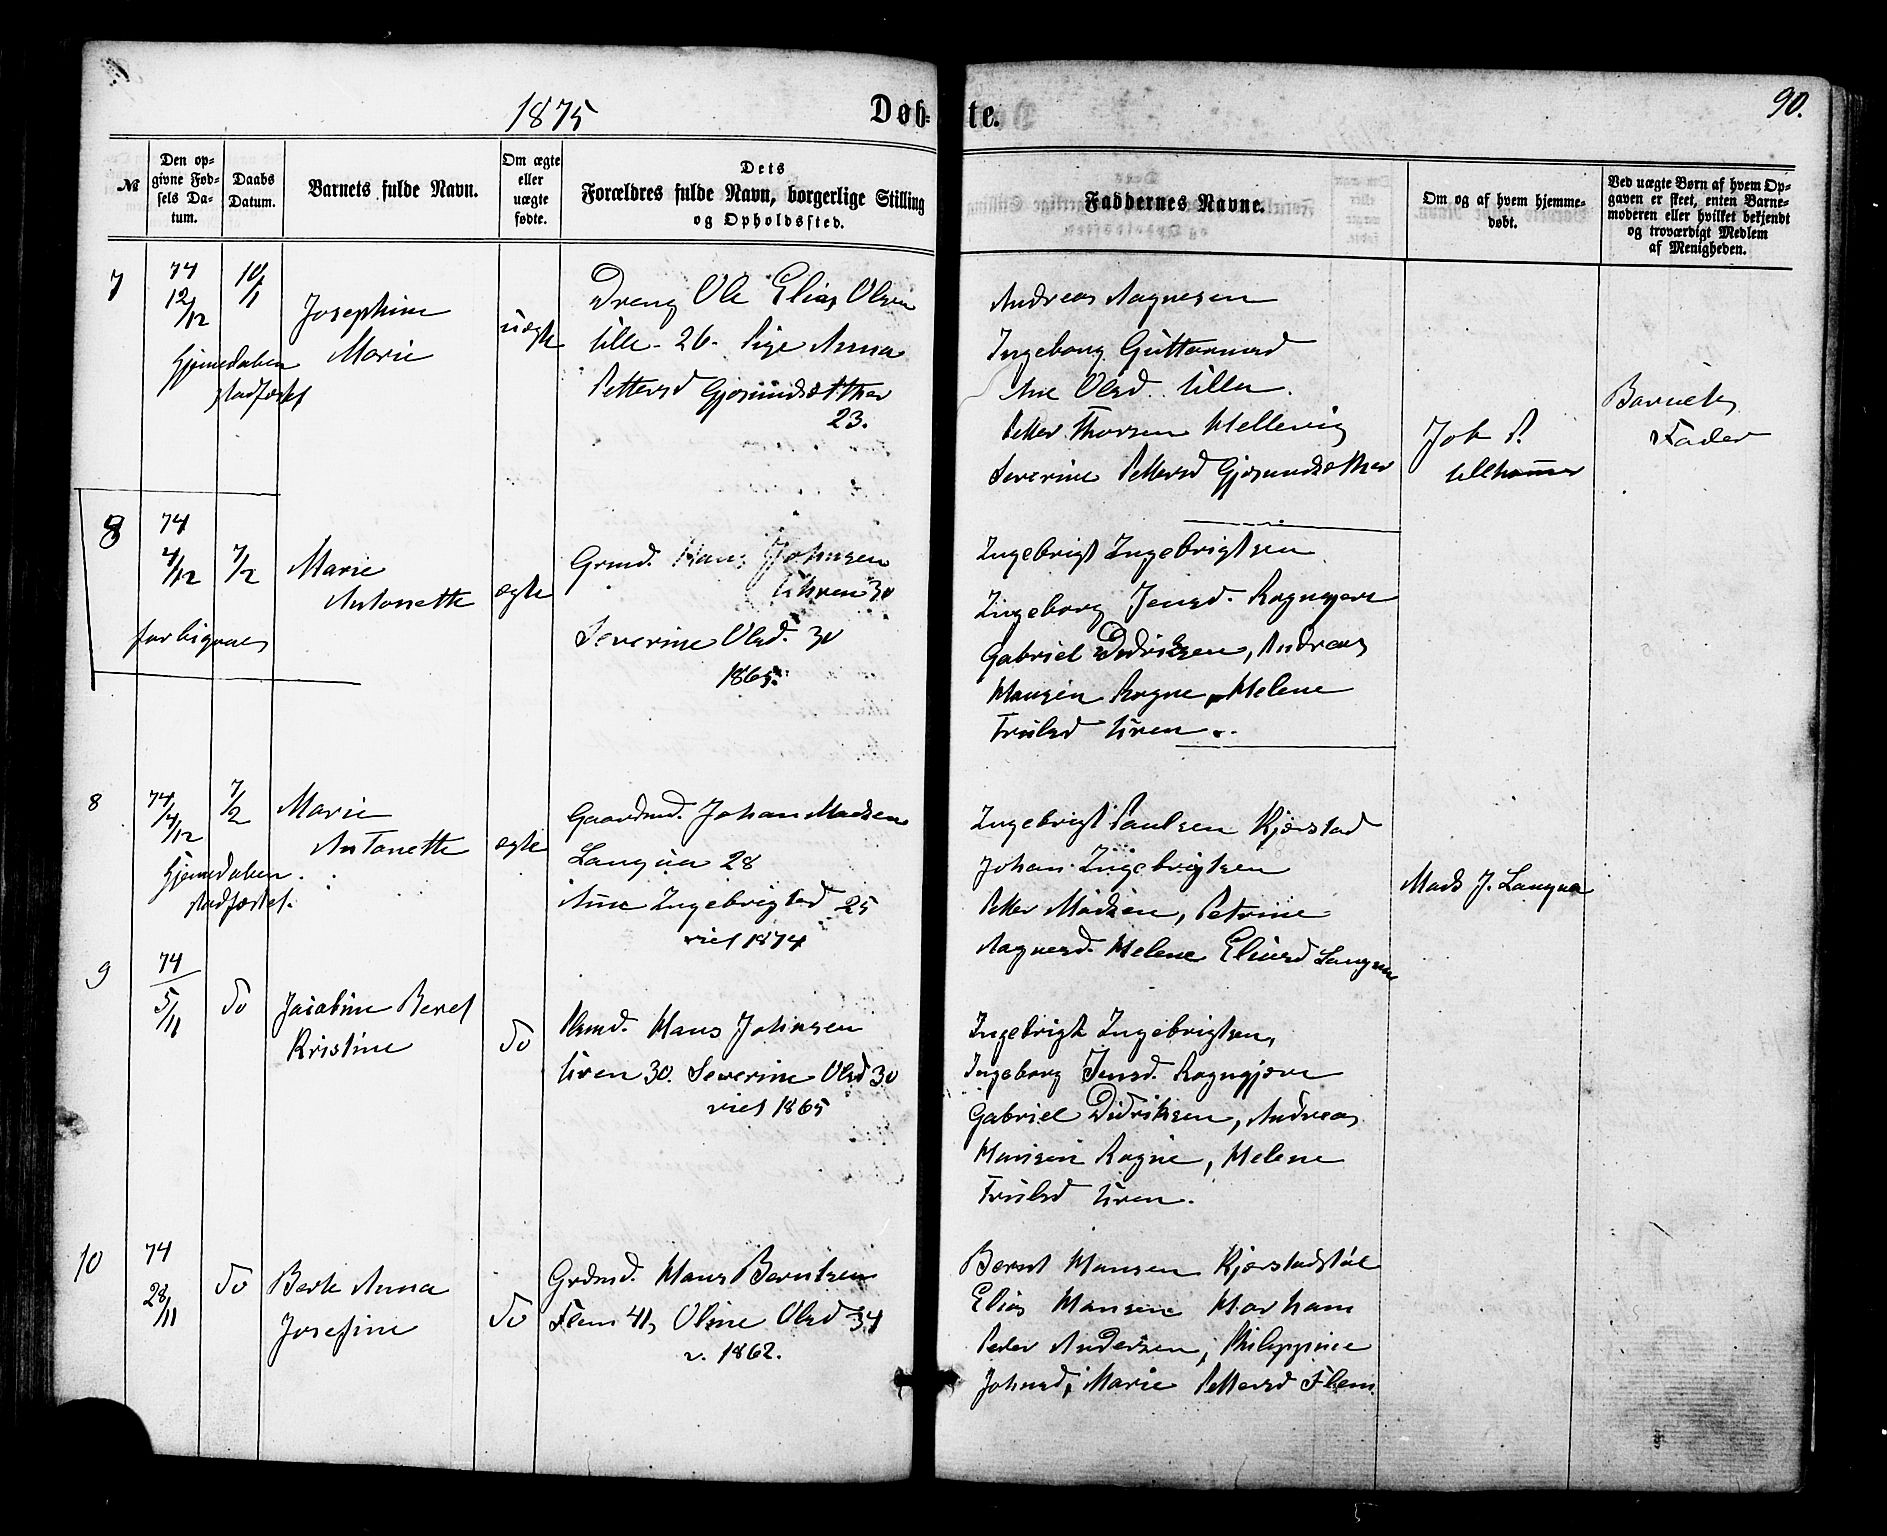 1875
Døb-
te.
90.
No
Den op-
givne Fød-
sels Da-
tum.
Daabs
Datum.
Barnets fulde Navn.
Om ægte
eller
uægte
fødte.
Dets
Forældres fulde Navn, borgerlige Stilling
og Opholdssted.
Faddernes Navne.
Om og af hvem hjemme-
døbt.
Ved uægte Børn af hvem Op-
gaven er skeet, enten Barne-
moderen eller hvilket bekjendt
og troværdigt Medlem
af Menigheden.
7
74
12/12
10/1
Hjemedaben
stadfæstet
Josephine
Marie
uægte
Dreng Ole Elias Olsen
Ulle - 26 - Pige Anna
Pettersd Gjøsundsæther
23.
Andreas Aagnesen
Ingeborg Guttormsd
Ane Olsd. Ulla.
Petter Thorsen Hellevig
Severine Pettersd Gjøsundsæther
Job P.
Ullhammer
Barnets
Fader
8
74
4/12
7/2
forbigaaes
Marie
Antonette
ægte
Grmd. Hans Johnsen
Uhren 30
Severine Olsd. 30
1865.
Ingebrigt Ingebrigtsen
Ingeborg Jensd. Rogngjære
Gabriel Didriksen, Andreas
Hansen Rogne, Helene
Trulsd Uren.
8
74
4/12
7/2
Hjemedaben
stadfæstet.
Marie
Antonette
ægte
Gaardmd. Johan Madsen
Langva 28
Ane Ingebrigtsd 25
viet 1874
Ingebrigt Paulsen Kjærstad
Johan Ingebrigtsen
Petter Madsen, Petrine
Aagnesd. Helene Eliasd Langva
Mads J. Langva
9
74
5/11
Do
Jacobine Beret
Kristine
Do
Plsmd. Hans Johnsen
Uren 30. Severine Olsd 30
viet 1865
Ingebrigt Ingebrigtsen,
Ingeborg Jensd. Rogngjære
Gabriel Didriksen, Andreas
Hansen Rogne, Helene
Trulsd Uren.
10
74
28/11
Do
Berte Anna
Josefine
Do
Grdmd. Hans Berntsen
Flem 41, Oline Olsd 34
v. 1862.
Bernt Hansen Kjærstadstøl
Elias Hansen Harham
Peder Andersen, Philippine
Johnsd, Marie Pettersd Flem.